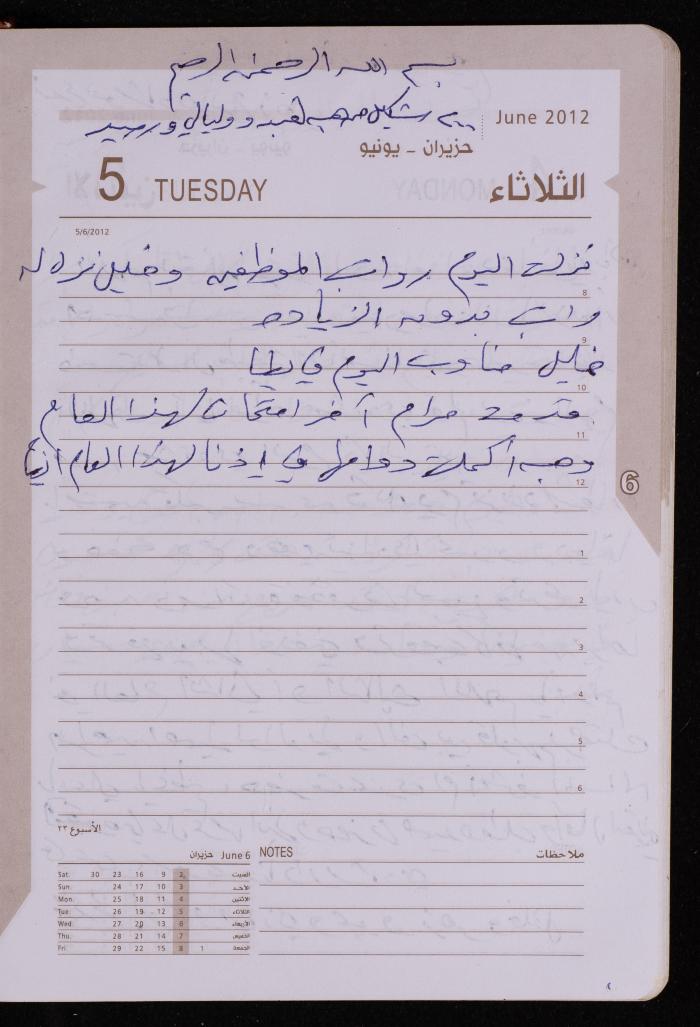 بسم الله الرحمن الرحيم
٢٠٠ شيكل وليالي
June 2012
حزيران - يونيو
5 TUESDAY الثلاثاء
5/6/2012
نزلت اليوم رواتب الموظفين وخليل نزل له
8
راتب بدون الزيادة
9
خليل مناوب اليوم في يطا
10
قدمت مرام آخر امتحانات لهذا العام
11
وهبه أكملت دوامها في إذنا لهذا العام أيضا
12
6
1
2
3
4
5
6
الأسبوع ٢٣
June 6 حزيران
NOTES ملاحظات
Sat. 30 23 16 9 2 السبت
Sun. 24 17 10 3 الأحد
Mon. 25 18 11 4 الاثنين
Tue. 26 19 12 5 الثلاثاء
Wed. 27 20 13 6 الأربعاء
Thu. 28 21 14 7 الخميس
Fri. 29 22 15 8 1 الجمعة